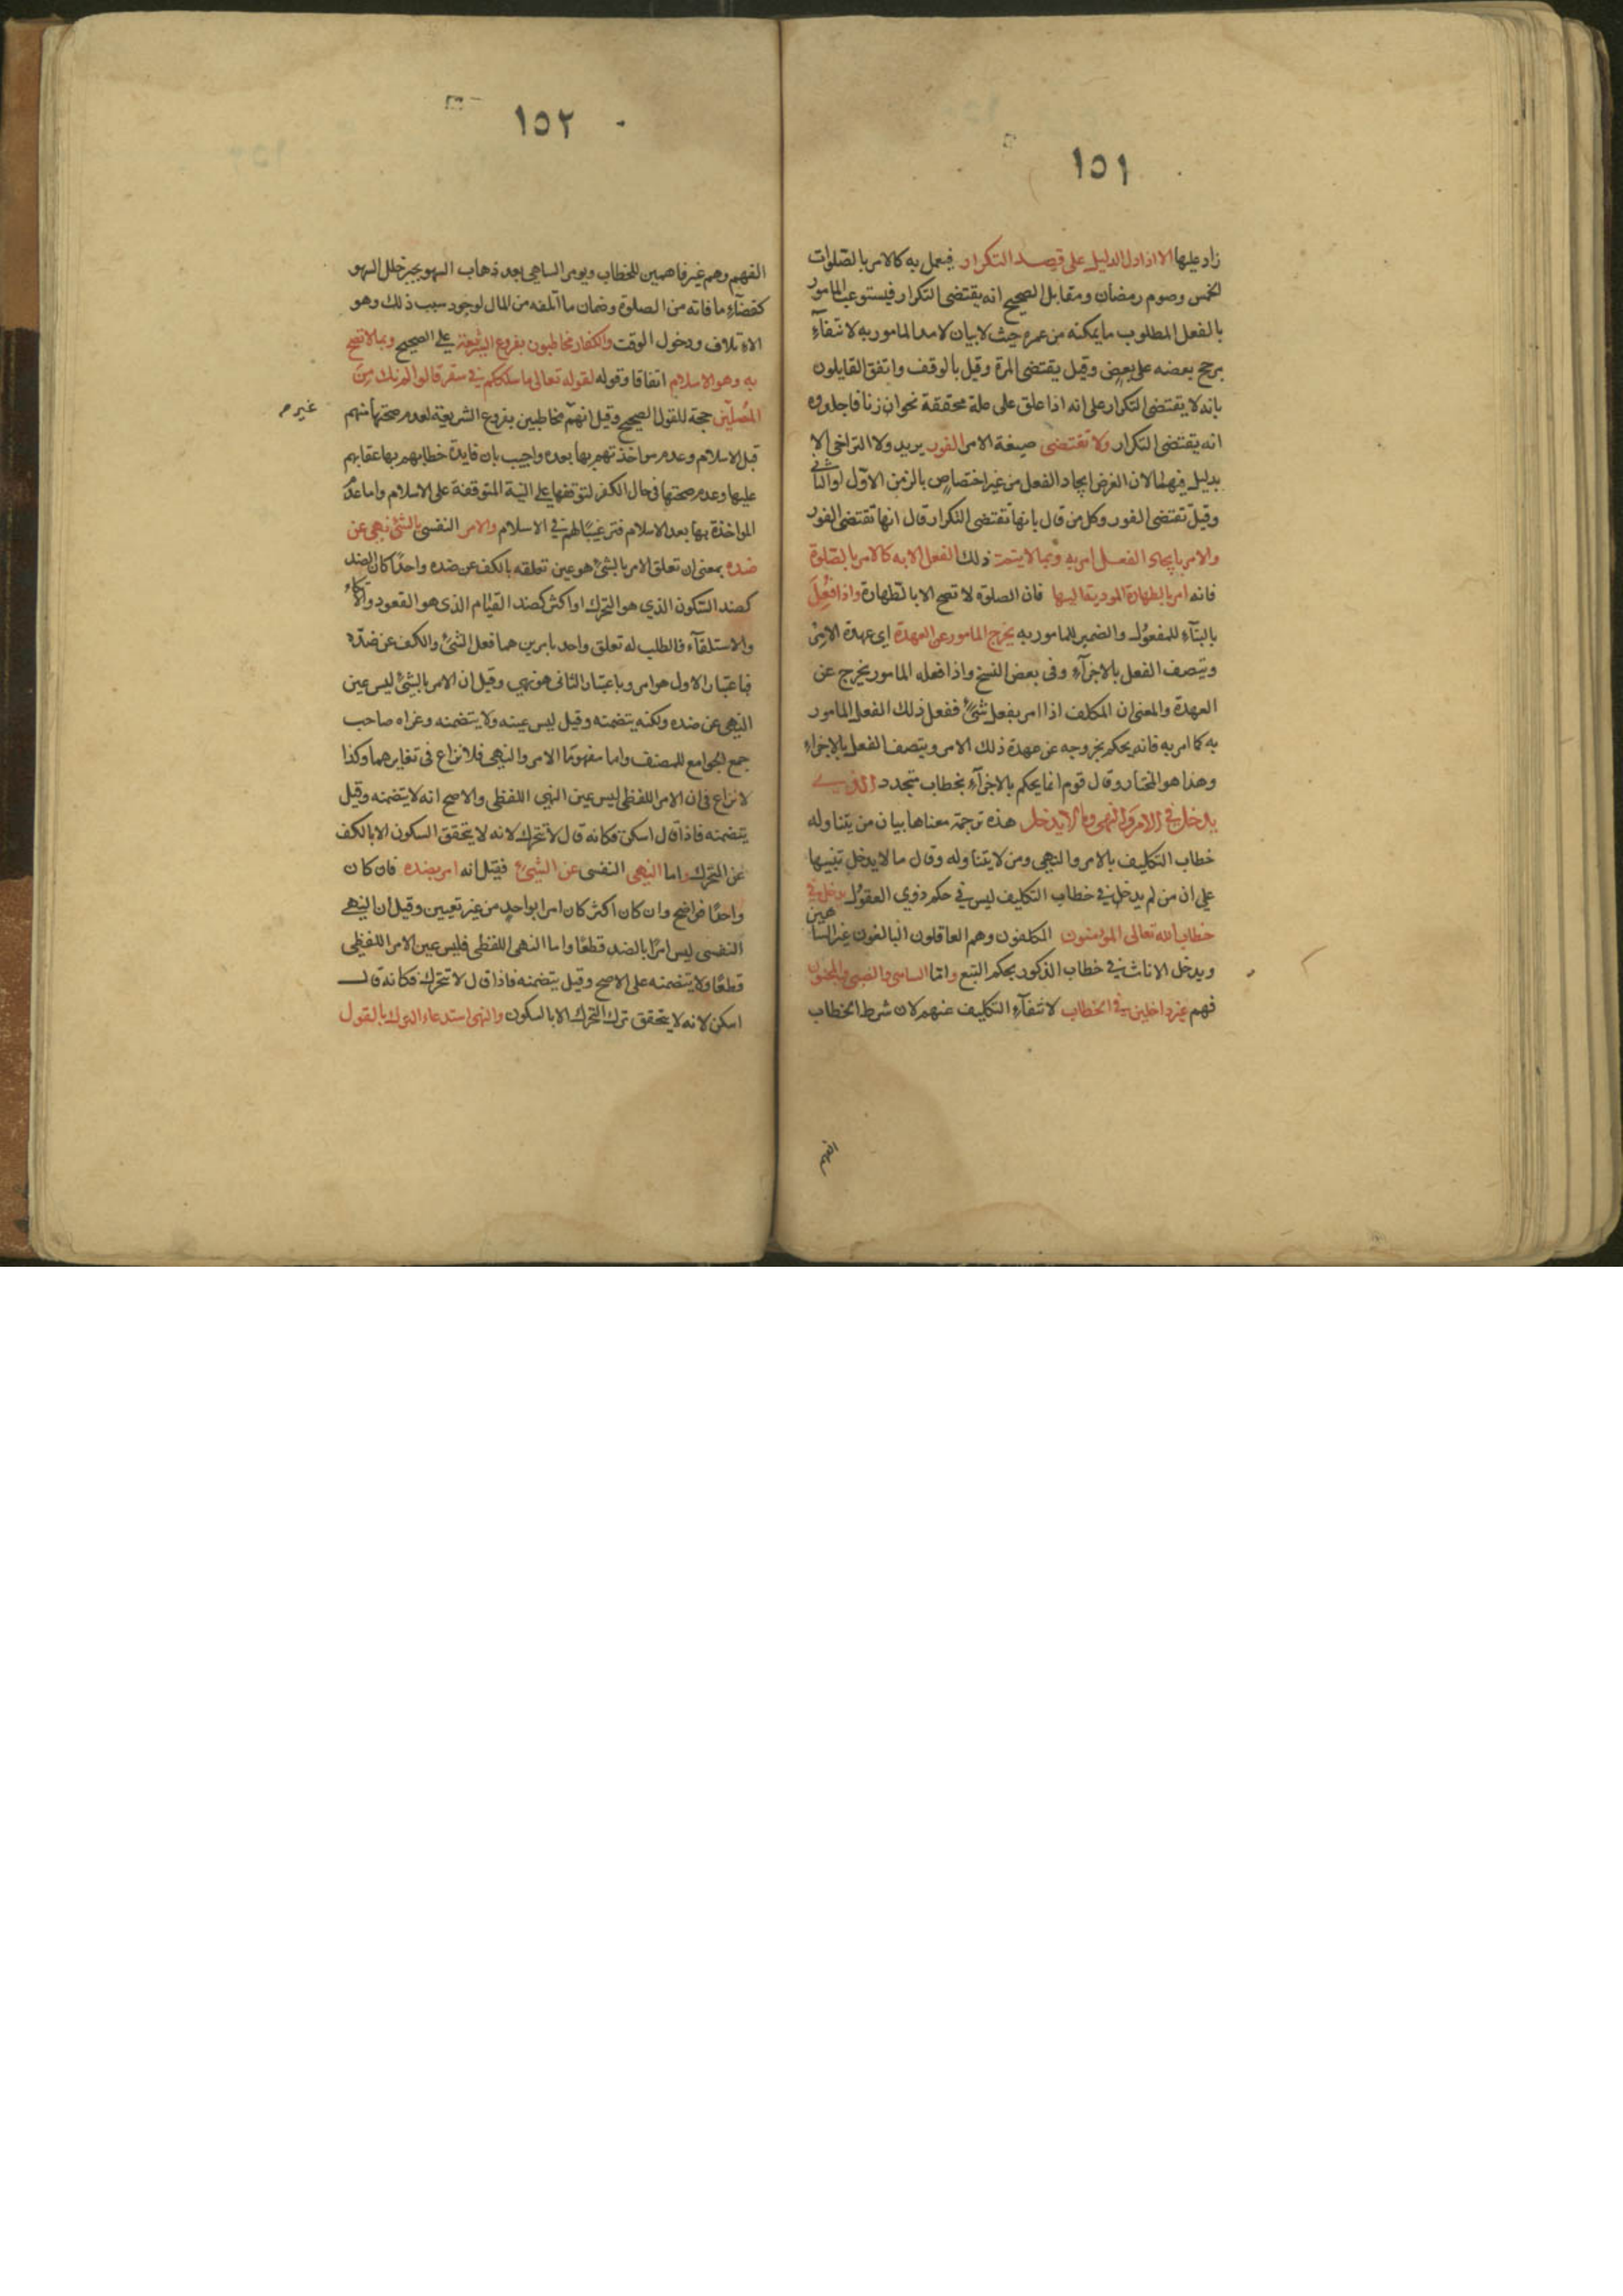 ١٥١
زاد عليها الا اذا دل الدليل على قصد التكرار فيعمل به كالامر بالصلوات
الخمس وصوم رمضان ومقابل الصحيح انه يقتضى التكرار فيستوعب المامور
بالفعل المطلوب ما يمكنه من عمره حيث لا بيان لامد المامور به لانتفآء
مرجح بعضه على بعض وقيل يقتضى المرة وقيل بالوقف واتفق القايلون
بانه لا يقتضى التكرار على انه اذا علق على علة محققة نحو ان زنا فاجلدوه
انه يقتضى التكرار ولا تقتضى صيغة الامر الفور يريد ولا التراخى الا
بدليل فيهما لان الغرض ايجاد الفعل من غير اختصاص بالزمن الاول او الثانى
وقيل تقتضى الفور وكل من قال بانها تقتضى التكرار قال انها تقتضى الفور
والامر بايجاد الفعل امر به وبما لا يتم ذلك الفعل الا به كالامر بالصلوة
فانه امر بالطهارة الموديۃ اليها فان الصلوة لا تصح الا بالطهارة واذا فُعِلَ
بالبنآء للمفعول والضمير للمامور به يخرج المامور عن العهدة اى عهدة الامر
ويتصف الفعل بالاجزآء وفى بعض النسخ واذا فعله المامور يخرج عن
العهدة والمعنى ان المكلف اذا امر بفعل شئ ففعل ذلك الفعل المامور
به كما امر به فانه يحكم بخروجه عن عهدة ذلك الامر ويتصف الفعل بالاجزاء
وهذا هو المختار وقال قوم انما يحكم بالاجزآء بخطاب متجدد الذي
يدخل في الامر والنهي وما لا يدخل هذه ترجمة معناها بيان من يتناوله
خطاب التكليف بالامر والنهي ومن لا يتناوله وقال ما لا يدخل تنبيها
على ان من لم يدخل في خطاب التكليف ليس في حكم ذوي العقول يدخل في
خطاب الله تعالى المومنون المكلفون وهم العاقلون البالغون غير الساهين
ويدخل الاناث في خطاب الذكور بحكم التبع واما الساهى والصبى والمجنون
فهم غير داخلين في الخطاب لانتفآء التكليف عنهم لان شرط الخطاب
الفهم
١٥٢
الفهم وهم غير فاهمين للخطاب ويومر الساهى بعد ذهاب السهو بجبر خلل السهو
كقضآء ما فاته من الصلوة وضمان ما اتلفه من المال لوجود سبب ذلك وهو
الاتلاف ودخول الوقت والكفار مخاطبون بفروع الشريعة على الصحيح وبما لا تصح
به وهو الاسلام اتفاقا وقوله لقوله تعالى ما سلككم في سقر قالوا لم نك من
المصلين حجة للقول الصحيح وقيل انهم مخاطبين بفروع الشريعة لعدم صحتها منهم
غير م
قبل الاسلام وعدم مواخذتهم بها بعده واجيب بان فايدة خطابهم بها عقابهم
عليها وعدم صحتها فى حال الكفر لتوقفها على النية المتوقفة على الاسلام واما عدم
المواخذة بها بعد الاسلام فترغيبا لهم في الاسلام والامر النفسى بالشئ نهى عن
ضده بمعنى ان تعلق الامر بالشئ هو عين تعلقه بالكف عن ضده واحدًا كان الضد
كضد السكون الذي هو التحرك او اكثر كضد القيام الذى هو القعود والاتكاء
والاستلقآء فالطلب له تعلق واحد بامرين هما فعل الشئ والكف عن ضده
فباعتبار الاول هو امر وباعتبار الثانى هو نهي وقيل ان الامر بالشئ ليس عين
النهى عن ضده ولكنه يتضمنه وقيل ليس عينه ولا يتضمنه وعزاه صاحب
جمع الجوامع للمصنف واما مفهوما الامر والنهى فلا نزاع فى تغايرهما وكذا
لا نزاع فى ان الامر اللفظى ليس عين النهى اللفظى والاصح انه لا يتضمنه وقيل
يتضمنه فاذا قال اسكن فكانه قال لا تتحرك لانه لا يتحقق السكون الا بالكف
عن التحرك واما النهى النفسى عن الشئ فقيل انه امر بضده فان كان
واحدًا فواضح وان كان اكثر كان امرا بواحد من غير تعيين وقيل ان النهي
النفسى ليس امرًا بالضد قطعًا واما النهى اللفظى فليس عين الامر اللفظى
قطعًا ولا يتضمنه على الاصح وقيل يتضمنه فاذا قال لا تتحرك فكانه قال
اسكن لانه لا يتحقق ترك التحرك الا بالسكون والنهى استدعاء الترك بالقول